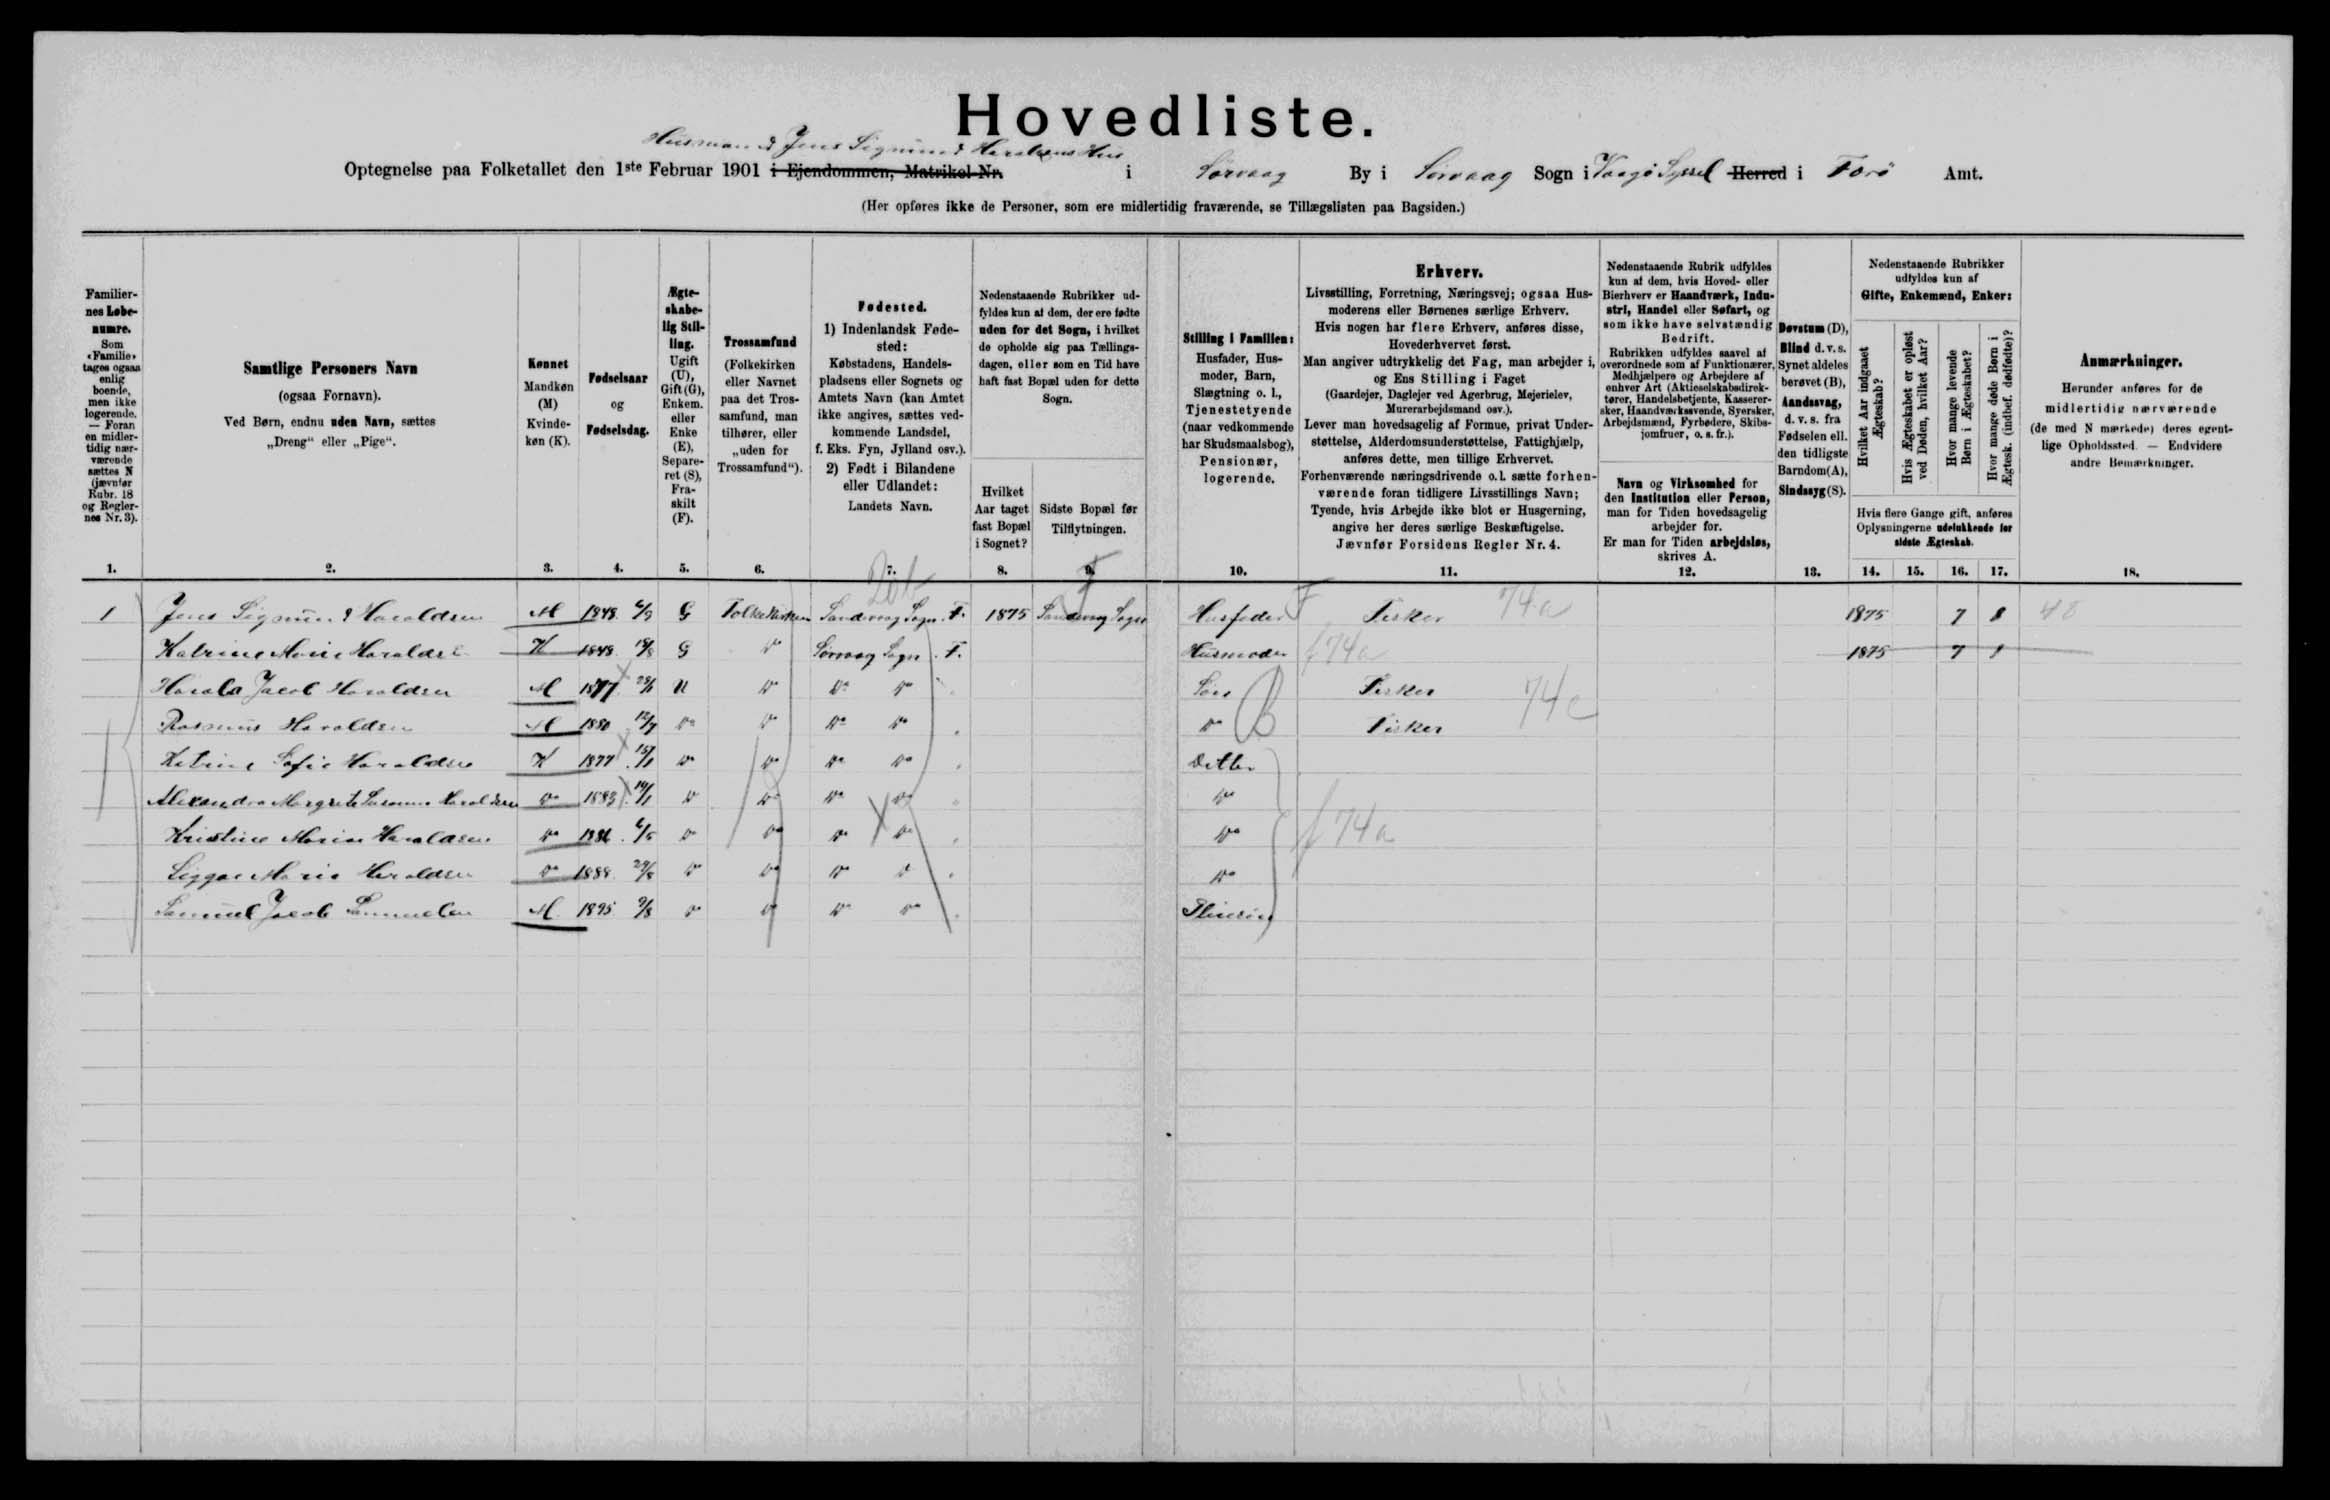 Hovedliste.
Husmand Jens Sigmund Haraldsens Hus
Optegnelse paa Folketallet den 1ste Februar 1901 i Ejendommen, Matrikel-Nr. i Sørvaag By i Sørvaag Sogn i Vaagø Syssel Herred i Færø Amt.
(Her opføres ikke de Personer, som ere midlertidig fraværende, se Tillægslisten paa Bagsiden.)
Familier-
nes Løbe-
numre.
Som
«Familie»
tages ogsaa
enlig
boende,
men ikke
logerende.
— Foran
en midler-
tidig nær-
værende
sættes N
(jævnfør
Rubr. 18
og Regler-
nes Nr. 3).
Samtlige Personers Navn
(ogsaa Fornavn).
Ved Børn, endnu uden Navn, sættes
„Dreng“ eller „Pige“.
Kønnet
Mandkøn
(M)
Kvinde-
køn (K).
Fødselsaar
og
Fødselsdag.
Ægte-
skabe-
lig Stil-
ling.
Ugift
(U),
Gift (G),
Enkem.
eller
Enke
(E),
Separe-
ret (S),
Fra-
skilt
(F).
Trossamfund
(Folkekirken
eller Navnet
paa det Tros-
samfund, man
tilhører, eller
„uden for
Trossamfund“).
Fødested.
1) Indenlandsk Føde-
sted:
Købstadens, Handels-
pladsens eller Sognets og
Amtets Navn (kan Amtet
ikke angives, sættes ved-
kommende Landsdel,
f. Eks. Fyn, Jylland osv.).
2) Født i Bilandene
eller Udlandet:
Landets Navn.
Nedenstaaende Rubrikker ud-
fyldes kun af dem, der ere fødte
uden for det Sogn, i hvilket
de opholde sig paa Tællings-
dagen, eller som en Tid have
haft fast Bopæl uden for dette
Sogn.
Hvilket
Aar taget
fast Bopæl
i Sognet?
Sidste Bopæl før
Tilflytningen.
Stilling i Familien:
Husfader, Hus-
moder, Barn,
Slægtning o. l.,
Tjenestetyende
(naar vedkommende
har Skudsmaalsbog),
Pensionær,
logerende.
Erhverv.
Livsstilling, Forretning, Næringsvej; ogsaa Hus-
moderens eller Børnenes særlige Erhverv.
Hvis nogen har flere Erhverv, anføres disse,
Hovederhvervet først.
Man angiver udtrykkelig det Fag, man arbejder i,
og Ens Stilling i Faget
(Gaardejer, Daglejer ved Agerbrug, Mejerielev,
Murerarbejdsmand osv.).
Lever man hovedsagelig af Formue, privat Under-
støttelse, Alderdomsunderstøttelse, Fattighjælp,
anføres dette, men tillige Erhvervet.
Forhenværende næringsdrivende o. l. sætte forhen-
værende foran tidligere Livsstillings Navn;
Tyende, hvis Arbejde ikke blot er Husgerning,
angive her deres særlige Beskæftigelse.
Jævnfør Forsidens Regler Nr. 4.
Nedenstaaende Rubrik udfyldes
kun af dem, hvis Hoved- eller
Bierhverv er Haandværk, Indu-
stri, Handel eller Søfart, og
som ikke have selvstændig
Bedrift.
Rubrikken udfyldes saavel af
overordnede som af Funktionærer,
Medhjælpere og Arbejdere af
enhver Art (Aktieselskabsdirek-
tører, Handelsbetjente, Kasserer-
sker, Haandværkssvende, Syersker,
Arbejdsmænd, Fyrbødere, Skibs-
jomfruer, o. s. fr.).
Navn og Virksomhed for
den Institution eller Person,
man for Tiden hovedsagelig
arbejder for.
Er man for Tiden arbejdsløs,
skrives A.
Døvstum (D),
Blind d. v. s.
Synet aldeles
berøvet (B),
Aandssvag,
d. v. s. fra
Fødselen ell.
den tidligste
Barndom (A),
Sindssyg (S).
Nedenstaaende Rubrikker
udfyldes kun af
Gifte, Enkemænd, Enker:
Hvilket Aar indgaaet
Ægteskab?
Hvis Ægteskabet er opløst
ved Døden, hvilket Aar?
Hvor mange levende
Børn i Ægteskabet?
Hvor mange døde Børn i
Ægtesk. (indbef. dødfødte)?
Hvis flere Gange gift, anføres
Oplysningerne udelukkende for
sidste Ægteskab.
Anmærkninger.
Herunder anføres for de
midlertidig nærværende
(de med N mærkede) deres egent-
lige Opholdssted. — Endvidere
andre Bemærkninger.
1. 2. 3. 4. 5. 6. 7. 8. 9. 10. 11. 12. 13. 14. 15. 16. 17. 18.
1 Jens Sigmund Haraldsen M 1848 6/9 G Folkekirken Sandevaag Sogn. F. 1875 Sandevaag Sogn Husfader F Fisker 74a 1875 7 1 48
Katrine Marie Haraldsen K 1848 G Do Sørvaag Sogn. F. Husmoder f 74a 1875 7 1
Harald Jacob Haraldsen M 1877 U Do Do Do Søn Fisker 74c
Rasmus Haraldsen M 1880 12/7 Do Do Do Do Do B Fisker
Katrine Sofie Haraldsen K 1877 15/1 Do Do Do Do Datter
Alexandra Margrete Susanne Haraldsen Do 1883 19/1 Do Do Do Do Do
Kristine Maria Haraldsen Do 1886 6/5 Do Do Do Do Do f 74a
Sigga Marie Haraldsen Do 1888 29/8 Do Do Do Do Do
Samuel Jacob Samuelsen M. 1895 9/8 Do Do Do Do Pleiesøn